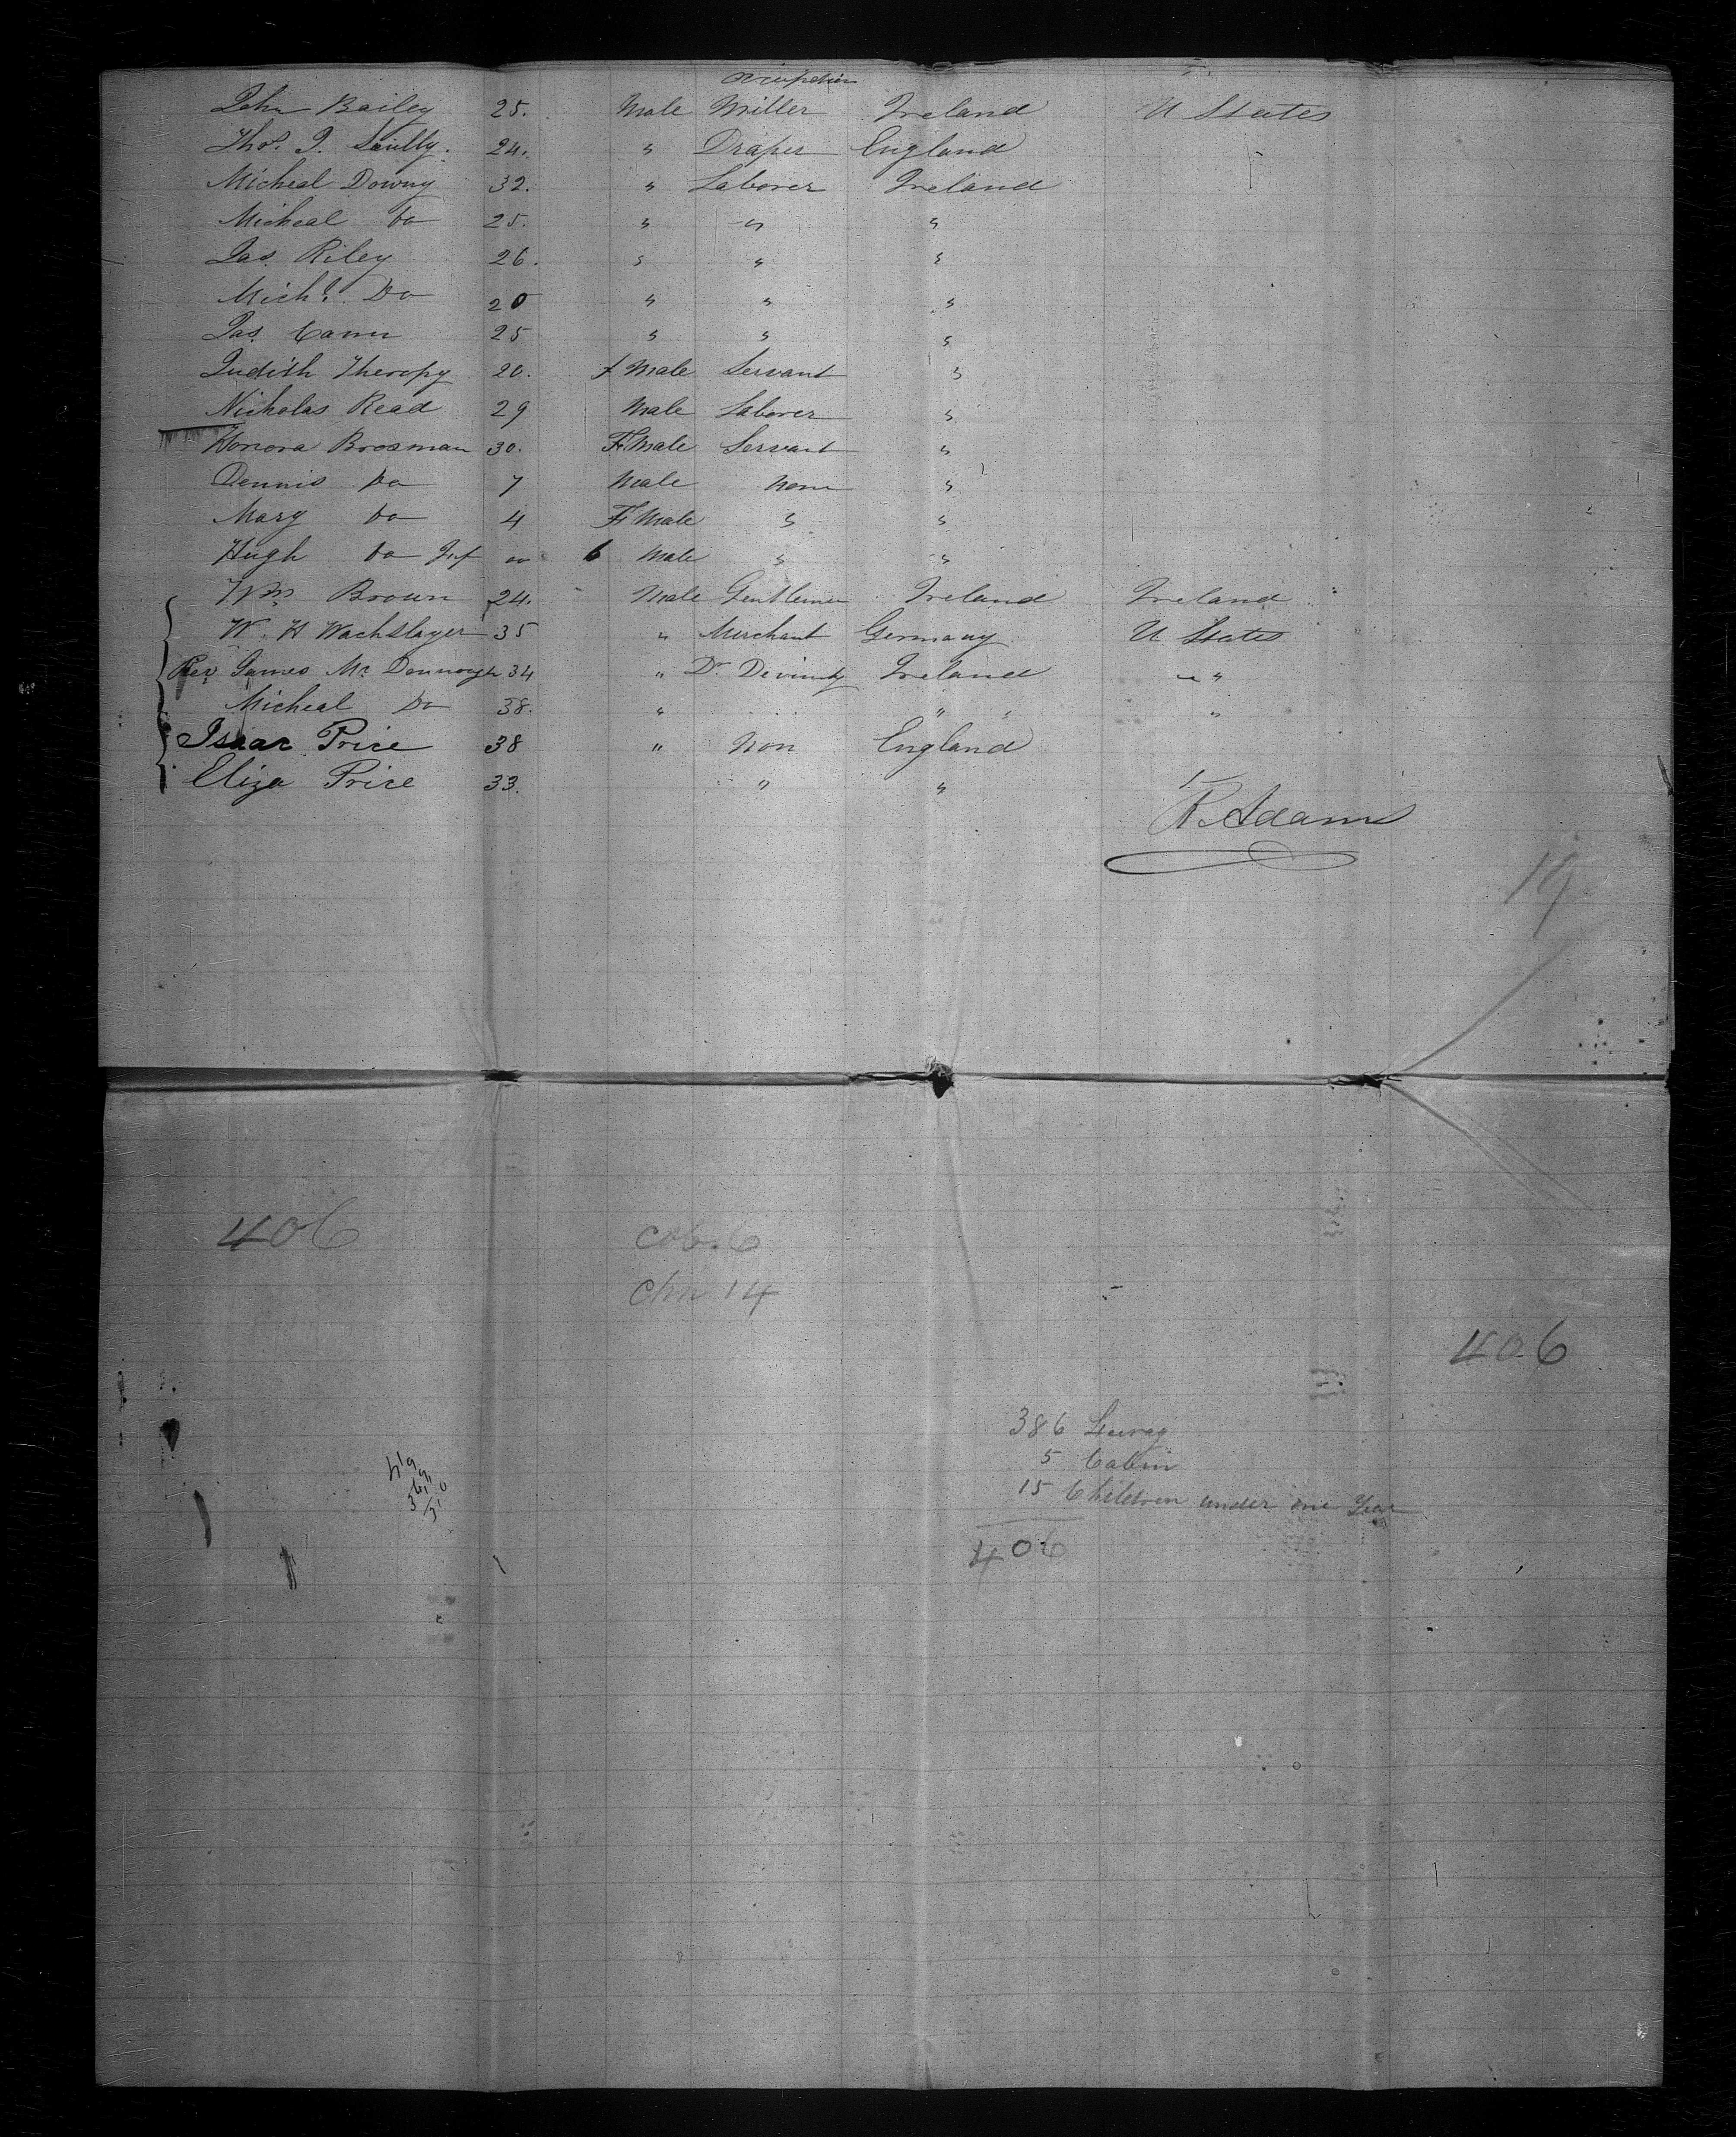 Occupation
John Bailey 25. Male Miller Ireland U States
Thos. J. Scully. 24. " Draper England
Micheal Downy 32. " Laborer Ireland
Micheal Do 25. " " "
Jas. Riley 26. " " "
Michl. Do 20 " " "
Jas. 25 " " "
Judith Theropy 20. f Male Servant "
Nicholas Read 29 Male Laborer "
Honora Brosman 30. FeMale Servant "
Dennis Do 7 Male None "
Mary Do 4 FeMale " "
Hugh Do Inf 6 Male " "
Wm Brown 24. Male Gentleman Ireland Ireland
W. H Wachslager 35 " Merchant Germany U States
Rev James Mc Donnough 34 " Dr. Divinity Ireland "
Micheal Do 38. " " "
Isaac Price 38 " Non England
Eliza Price 33. " "
R. Adams
19
406
Cab. 6
Chn 14
406
386 Steerag
5 Cabin
15 Children under one Year
406